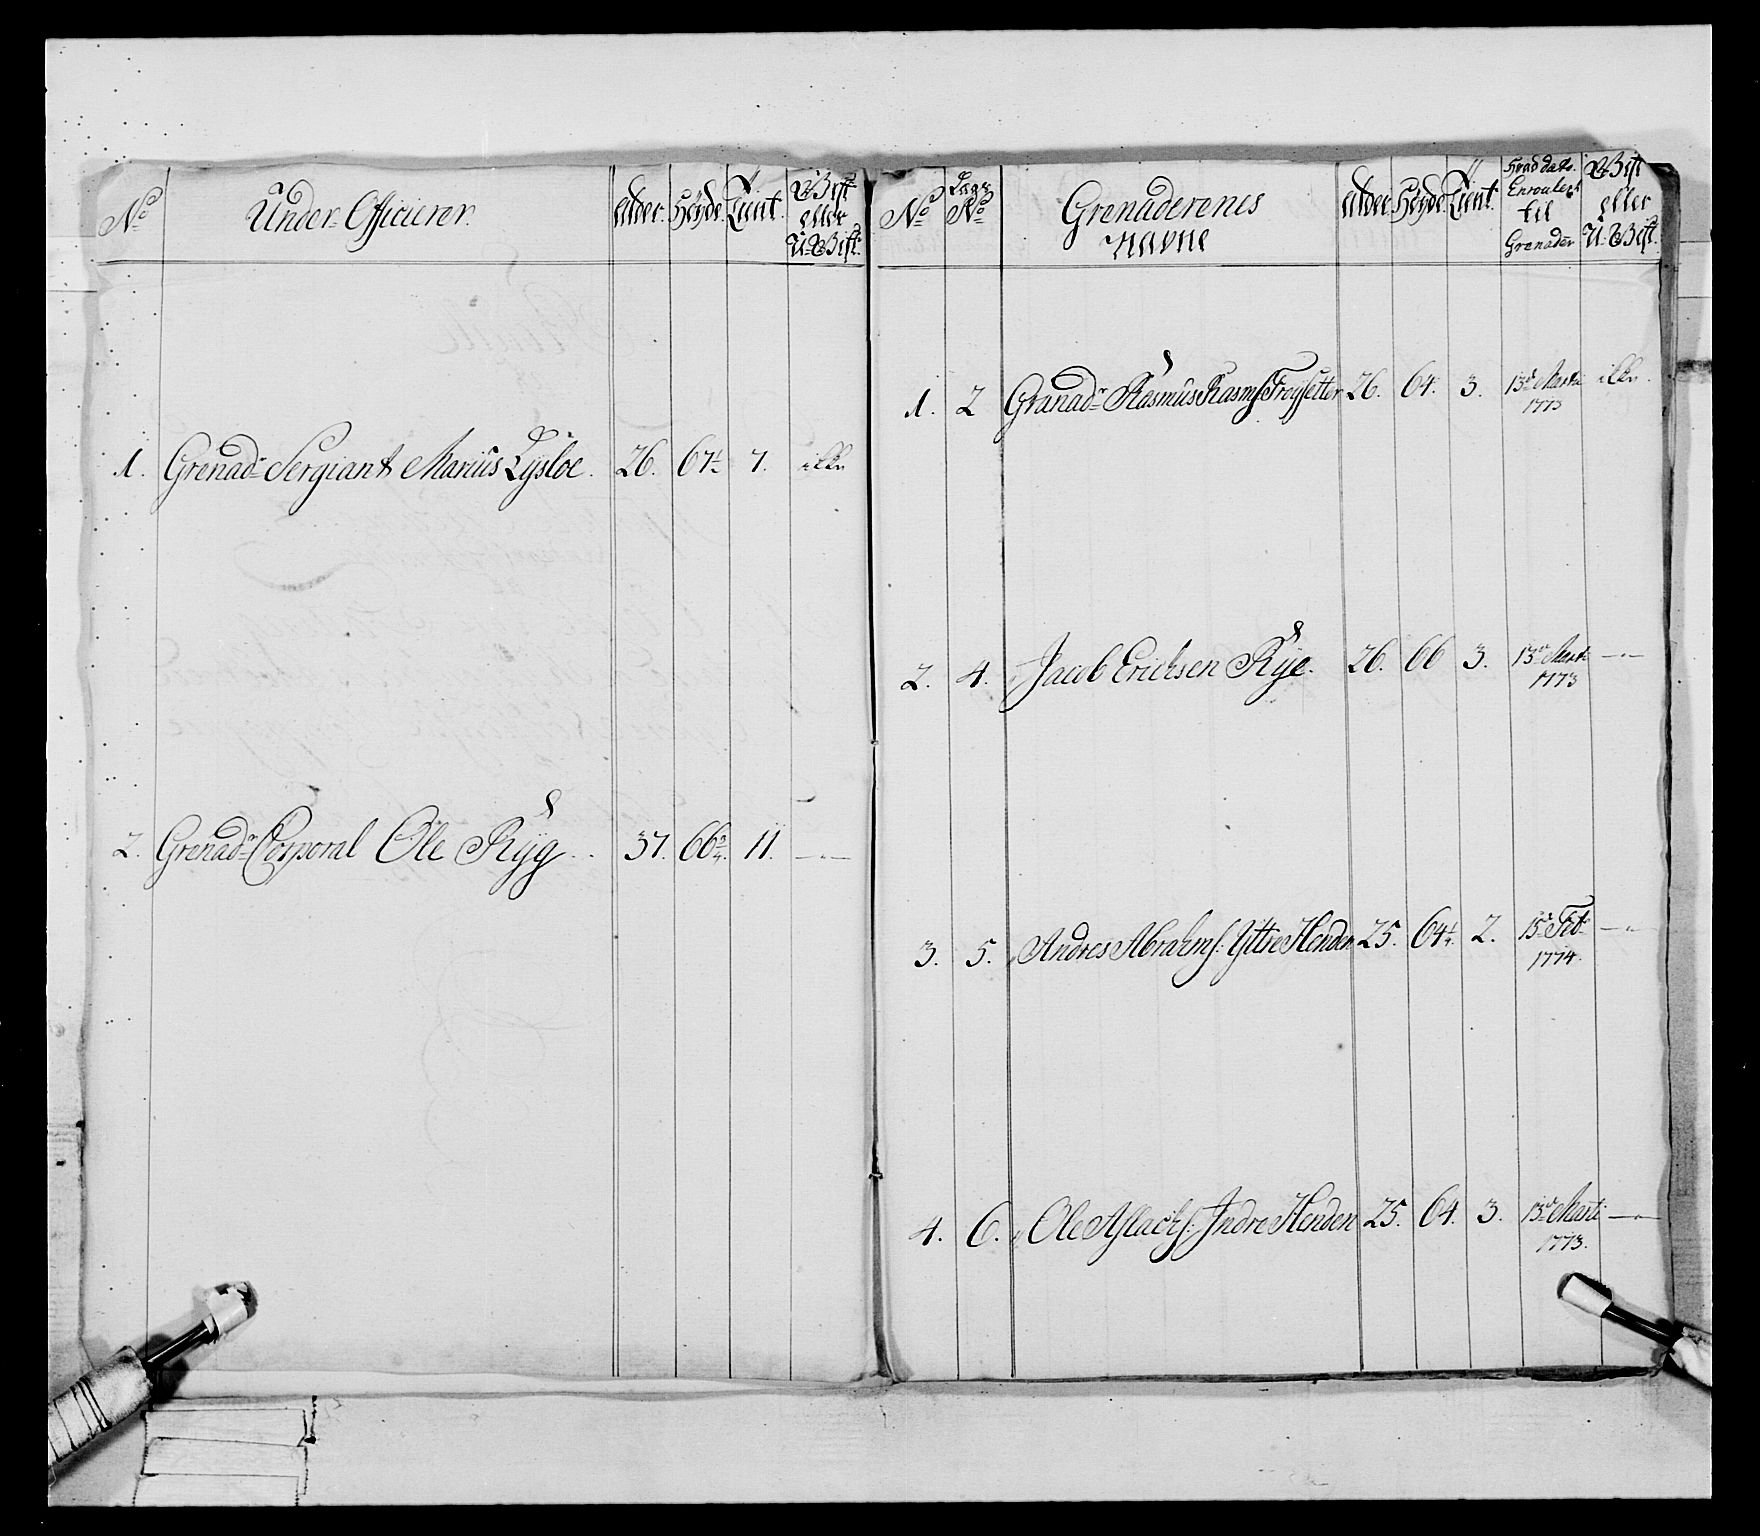 No
Under Officierer.
Alder.
Høyde
Tient.
Gift eller U-Gift.
1. Grenadr Sergiant Marius Lysloe. 26. 67½ 7. ikke
2. Grenadr Corporal Ole Ryg 37. 66¾. 11. —"—
No
No
Grenaderenes Navne
Alder
Høyde
Tient.
Hvad dato Enroulert til Grenadēr
Gift eller U-Gift.
1. 2 Granadr Rasmus Rasms: Frøysetter 26. 64. 3. 13d Marti ikke
1773
2. 4. " Jacob Erichsen Rye. 26. 66 3. 13d Marti —"—
1773
3. 5. " Andres Abrahms: Yttre Henden 25. 64¼. 2. 15d Feb: —"—
1774.
4. 6. " Ole Aslachs: Indre Henden 25. 64. 3. 13d Marti —"—
1773.